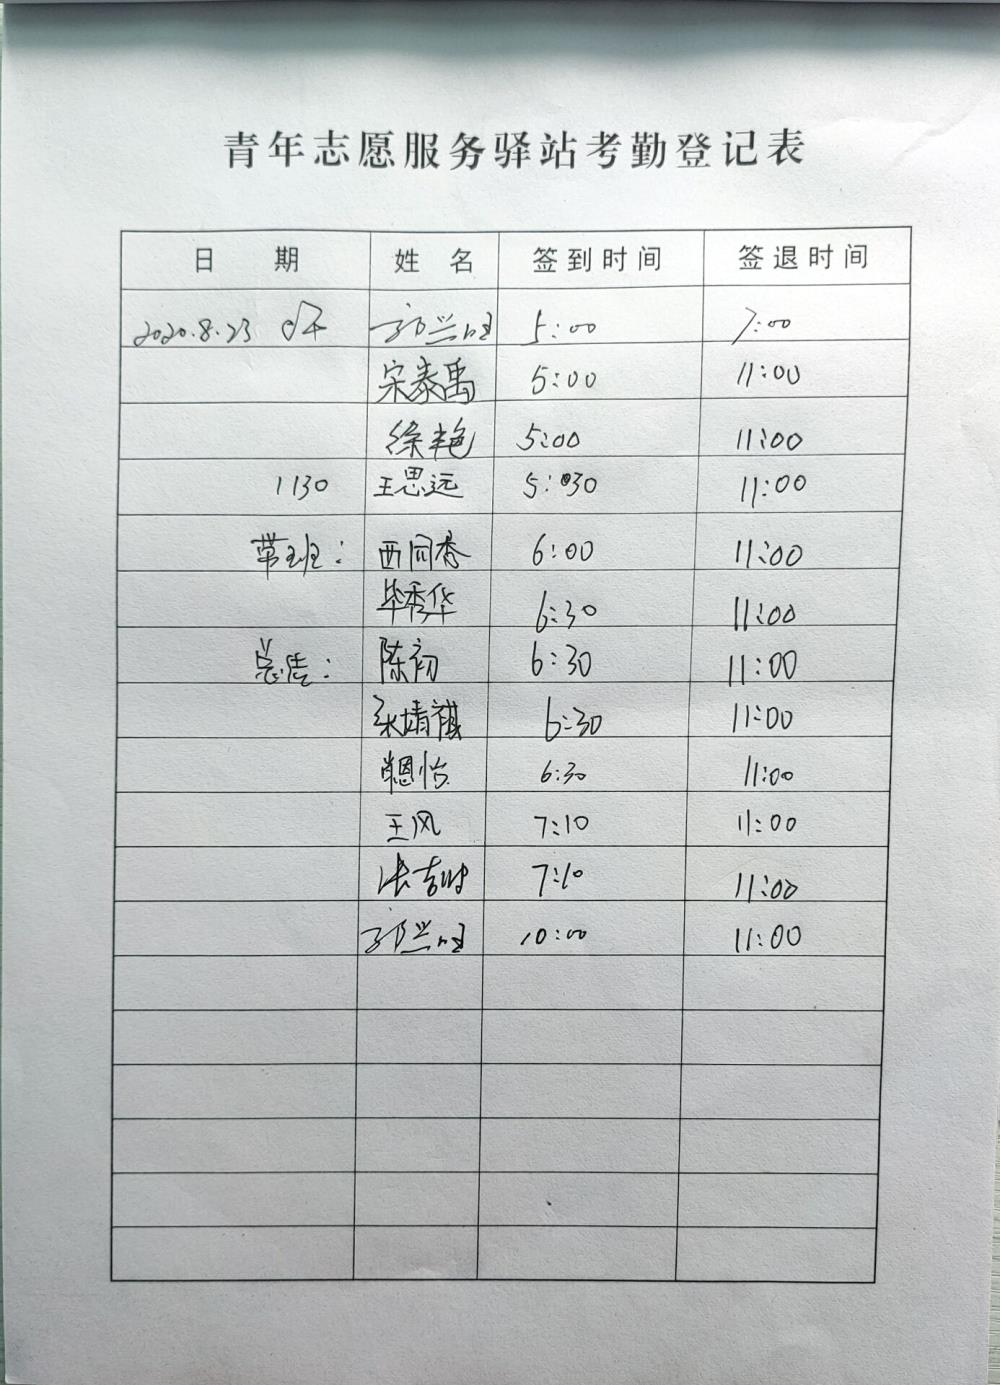 青年志愿服务驿站考勤登记表
日 期 姓 名 签到时间 签退时间
2020.8.23 5:00 7:00
宋泰禹 5:00 11:00
徐艳 5:00 11:00
1130 王思远 5:30 11:00
带班: 西同香 6:00 11:00
毕秀华 6:30 11:00
总借: 陈初 6:30 11:00
张靖祺 6:30 11:00
6:30 11:00
王风 7:10 11:00
张吉时 7:10 11:00
10:00 11:00